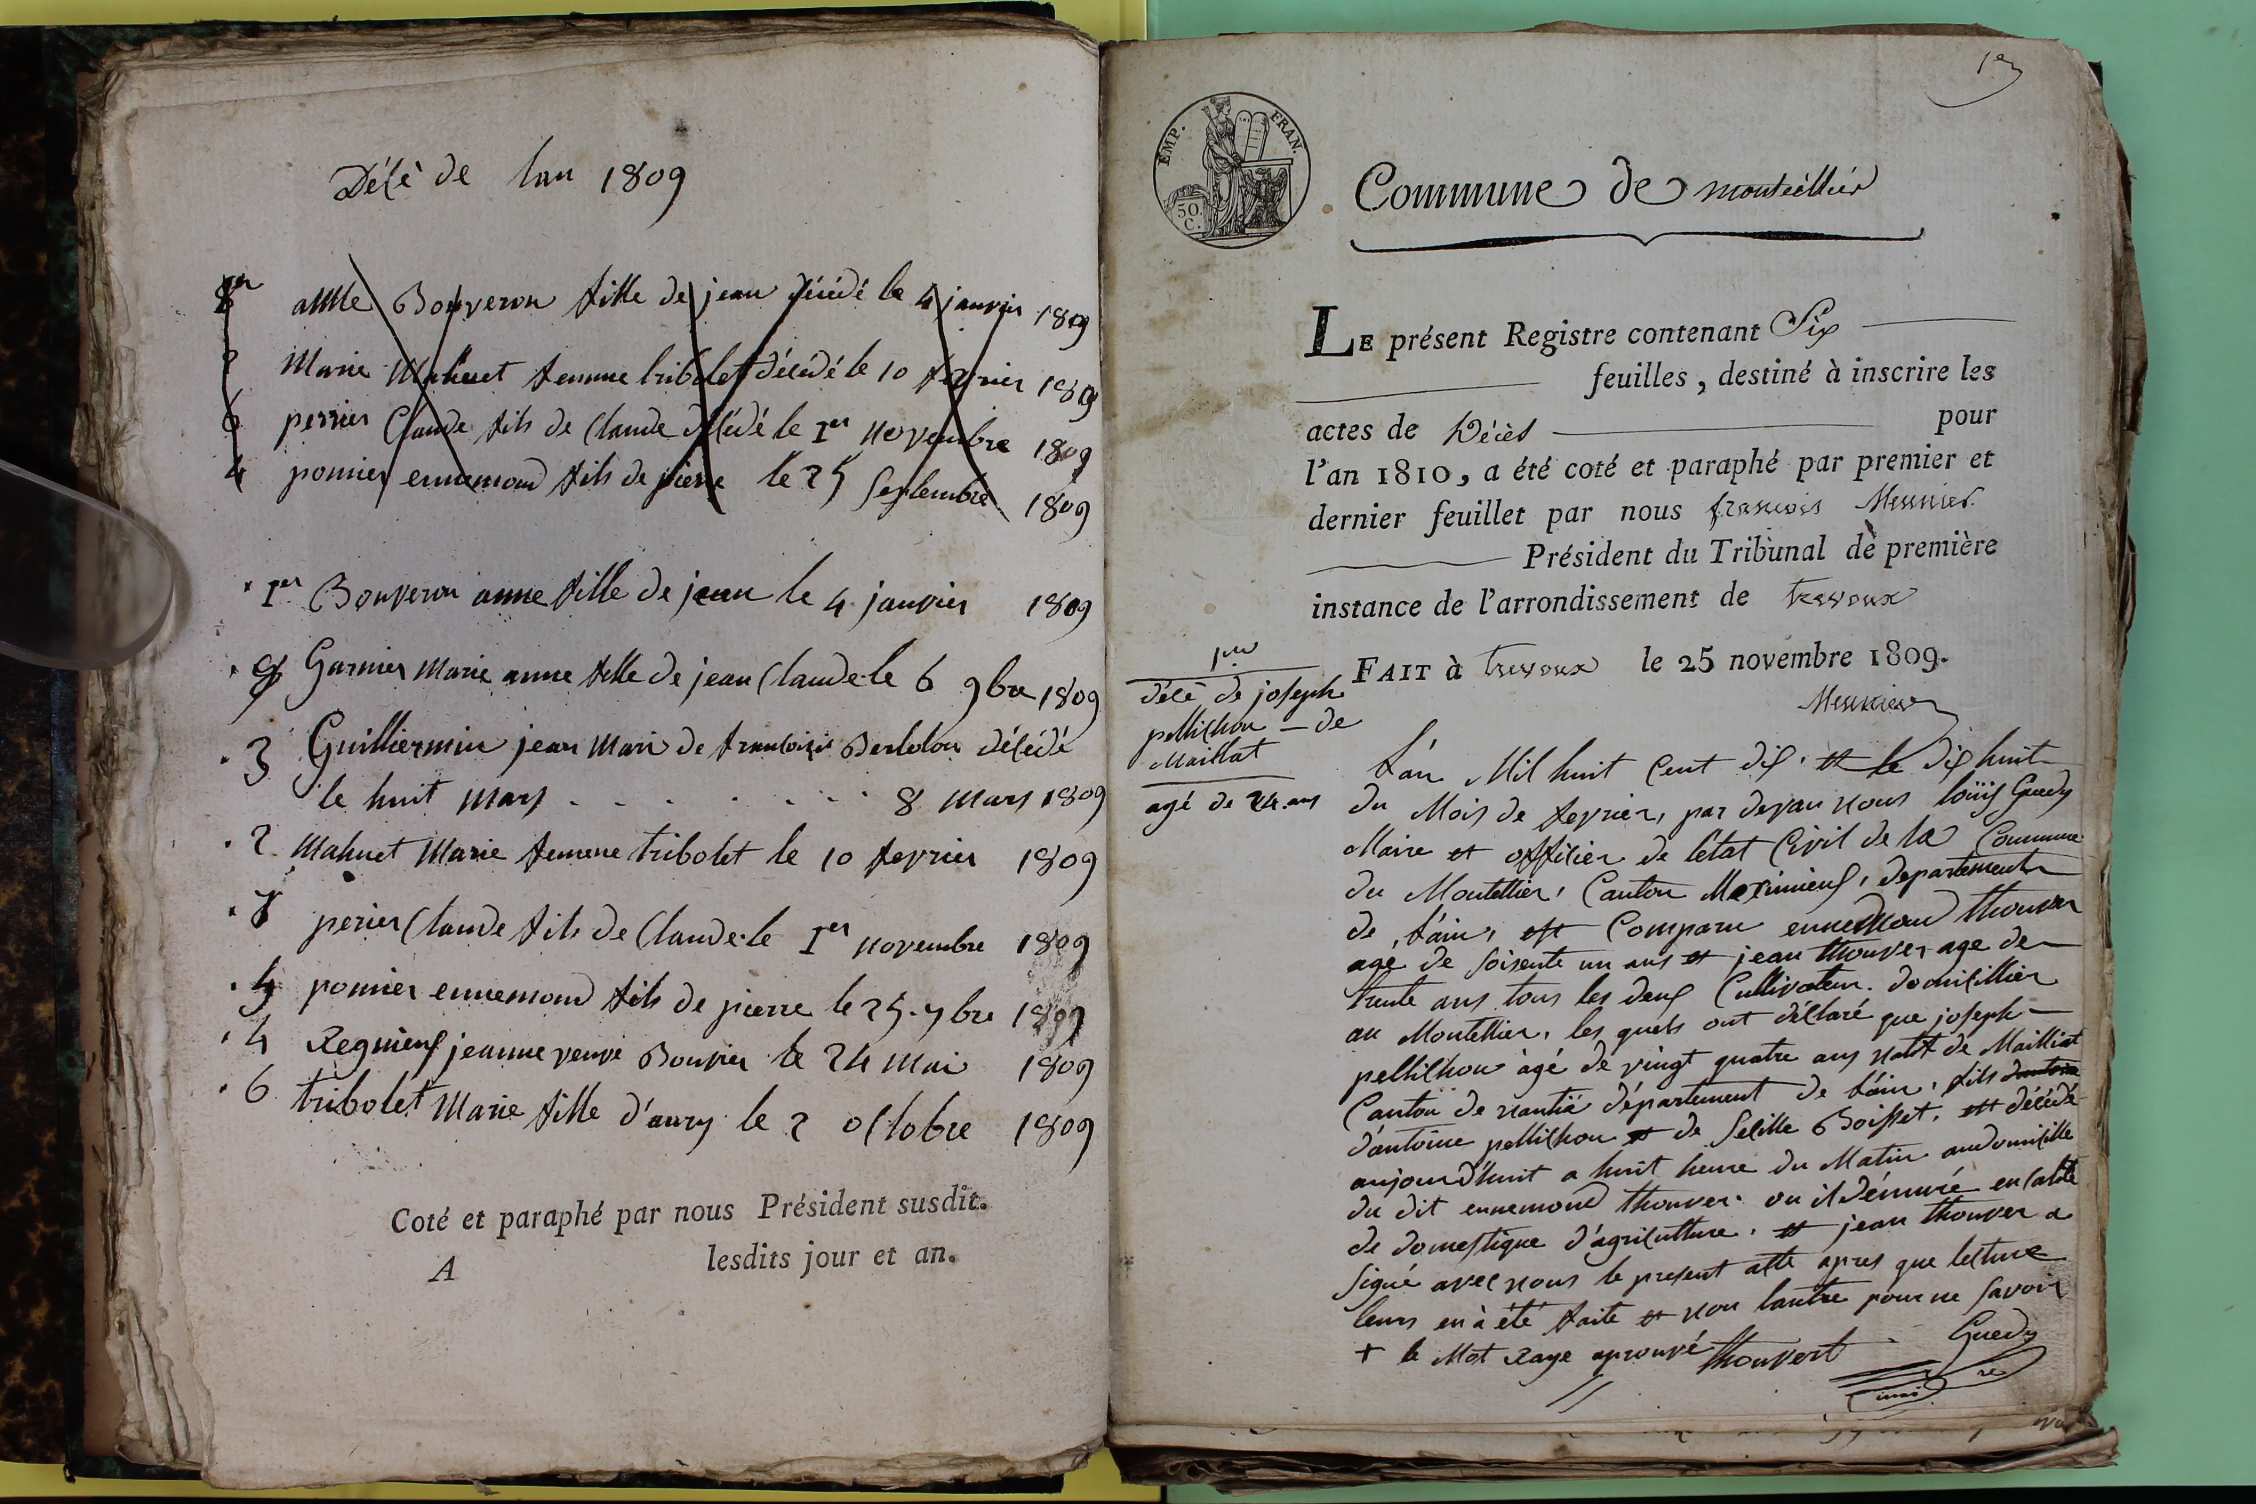 Décè de lan 1809
1er anne Bouveron fille de jean décédé le 4 janvier 1809
2 Marie Mahuet femme tribolet décédé le 10 fevrier 1809
perrier Claude fils de Claude décédé le 1er novembre 1809
4 ponnier ennemond fils de pierre le 25 septembre 1809
1er Bouveron anne fille de jean le 4 janvier 1809
8 Garnier Marie anne fille de jean Claude le 6 9bre 1809
3 Guilliermin jean Mari de francoise Berlelon décédé
le huit mars . . . . . . . 8 mars 1809
2 Mahuet Marie femme tribolet le 10 fevrier 1809
7 perier Claude fils de Claude le 1er novembre 1809
5 ponnier ennemond fils de pierre le 25 7bre 1809
4 Regnieux jeanne veuve Bouvier le 24 mai 1809
6 tribolet Marie fille d'aury le 2 octobre 1809
Coté et paraphé par nous Président susdit.
A lesdits jour et an.
1er
EMP. FRAN.
50. C.
Commune de montéëllier
LE présent Registre contenant Six
feuilles, destiné à inscrire les
actes de Décès pour
l'an 1810, a été coté et paraphé par premier et
dernier feuillet par nous francois Meunier
Président du Tribunal de première
instance de l'arrondissement de trevoux
FAIT à trevoux le 25 novembre 1809.
Meunier
1er
décè de joseph
pellichon - de
Maillat
agé de 24 ans
L'an Mil huit Cent dix et le dix huit
du Mois de fevrier, par devan nous loüis Guedy
Maire et officier de l'état Civil de la Commune
du Montellier, Canton Meximieux, departement
de l'ain, est Comparu ennemond thouver
age de soisente un ans et jean thouver age de
trente ans tous les deux Cultivateur domicillier
au Montellier, les quels ont déclaré que joseph
pellichon àgé de vingt quatre ans natif de Mailliat
Canton de nantüa département de l'ain, fils dantoine
d'antoine pellichon et de Secille Boisset, est décédé
aujourd'huit a huit heure du Matin audomicille
du dit ennemond thouver ou il démuré en calité
de domestique d'agriculture, et jean thouver a
signé avec nous le present acte apres que lecture
leurs en à été faite et non lautre pour ne savoir
+ le Mot Raye aprouvé thouvert Guedy
maire